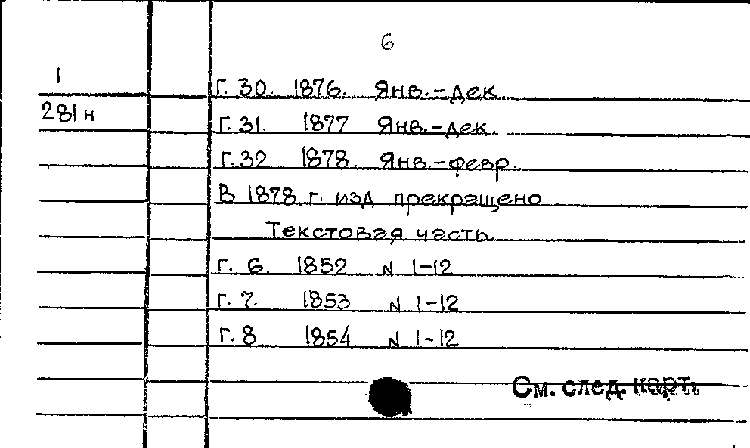 6
1
Г. 30. 1876. Янв.-дек.
281н
Г. 31. 1877 Янв.-дек.
Г. 32 1878. Янв.-февр.
В 1878 г. изд прекращено
Текстовая часть
Г. 6. 1852 N 1-12
Г. 7. 1853 N 1-12
Г. 8 1854 N 1-12
См. след. карт.